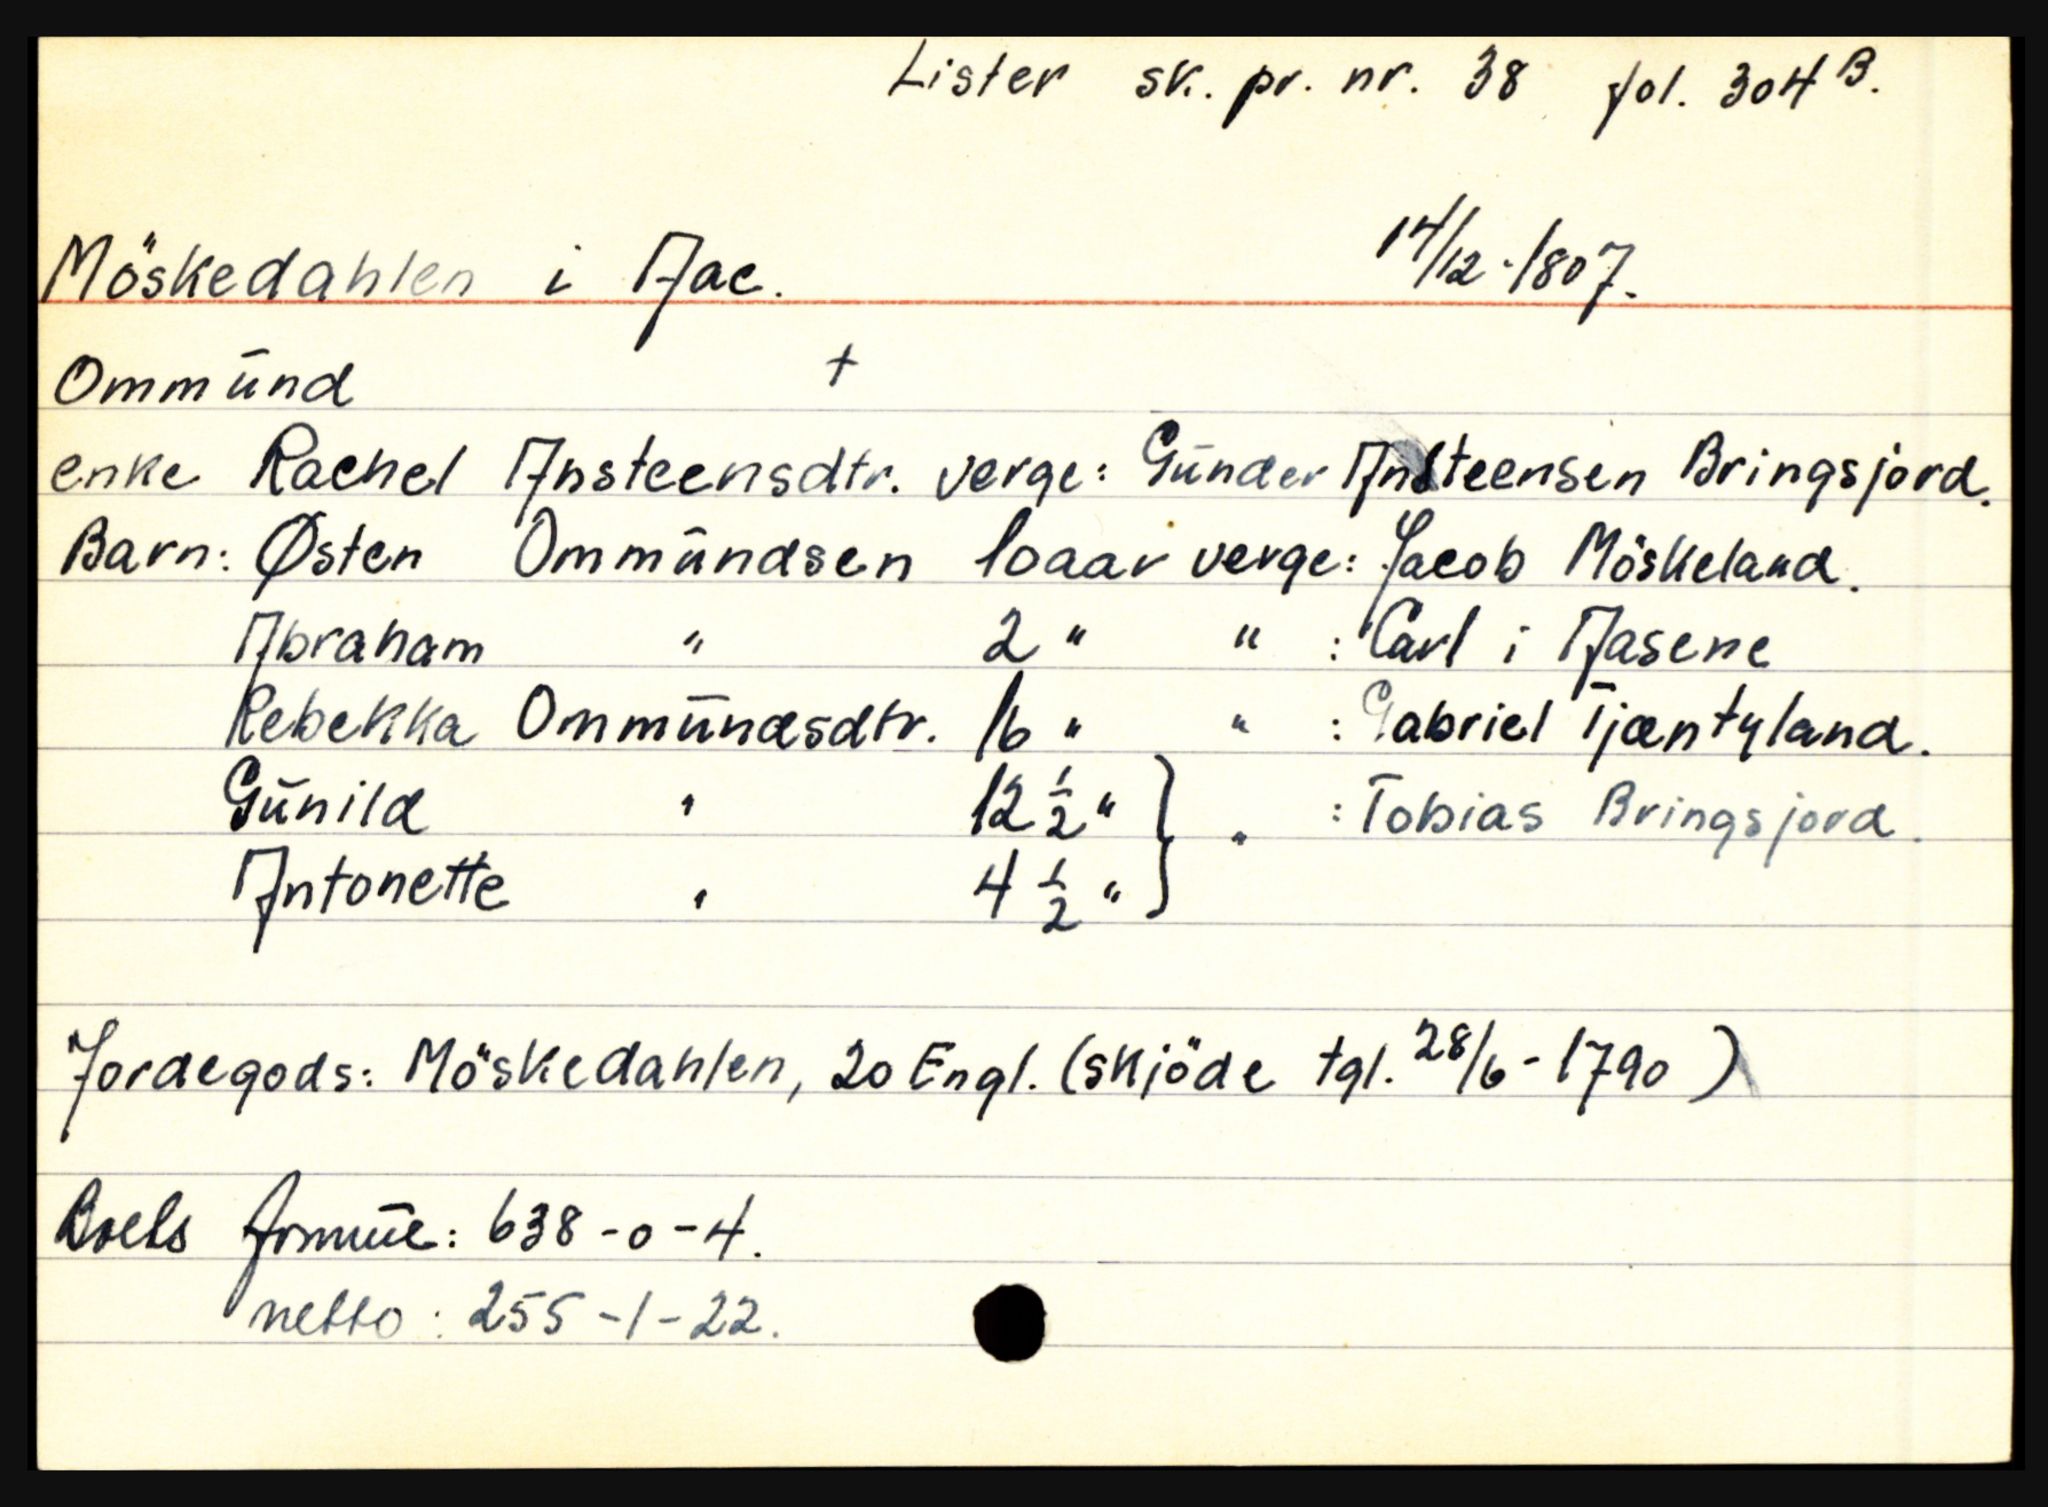 Lister sk. pr. nr. 38 fol. 304 B.
Möskedahlen i Aae. 14/12-1807.
Ommünd +
enke Rachel Ansteensdtr. verge: Günder Ansteensen Bringsjord.
Barn: Østen Ommündsen 10 aar verge: Jacob Möskeland.
Abraham " 2 " " : Carl i Aasene
Rebekka Ommündsdtr. 16 " " : Gabriel Tjæntyland.
Günild " 12 1/2 " } " : Tobias Bringsjord.
Antonette " 4 1/2 " }
Jordegods: Möskedahlen, 20 Engl. (skjöde tgl. 28/6-1790)
Boets formüe: 638-0-4.
netto: 255-1-22.